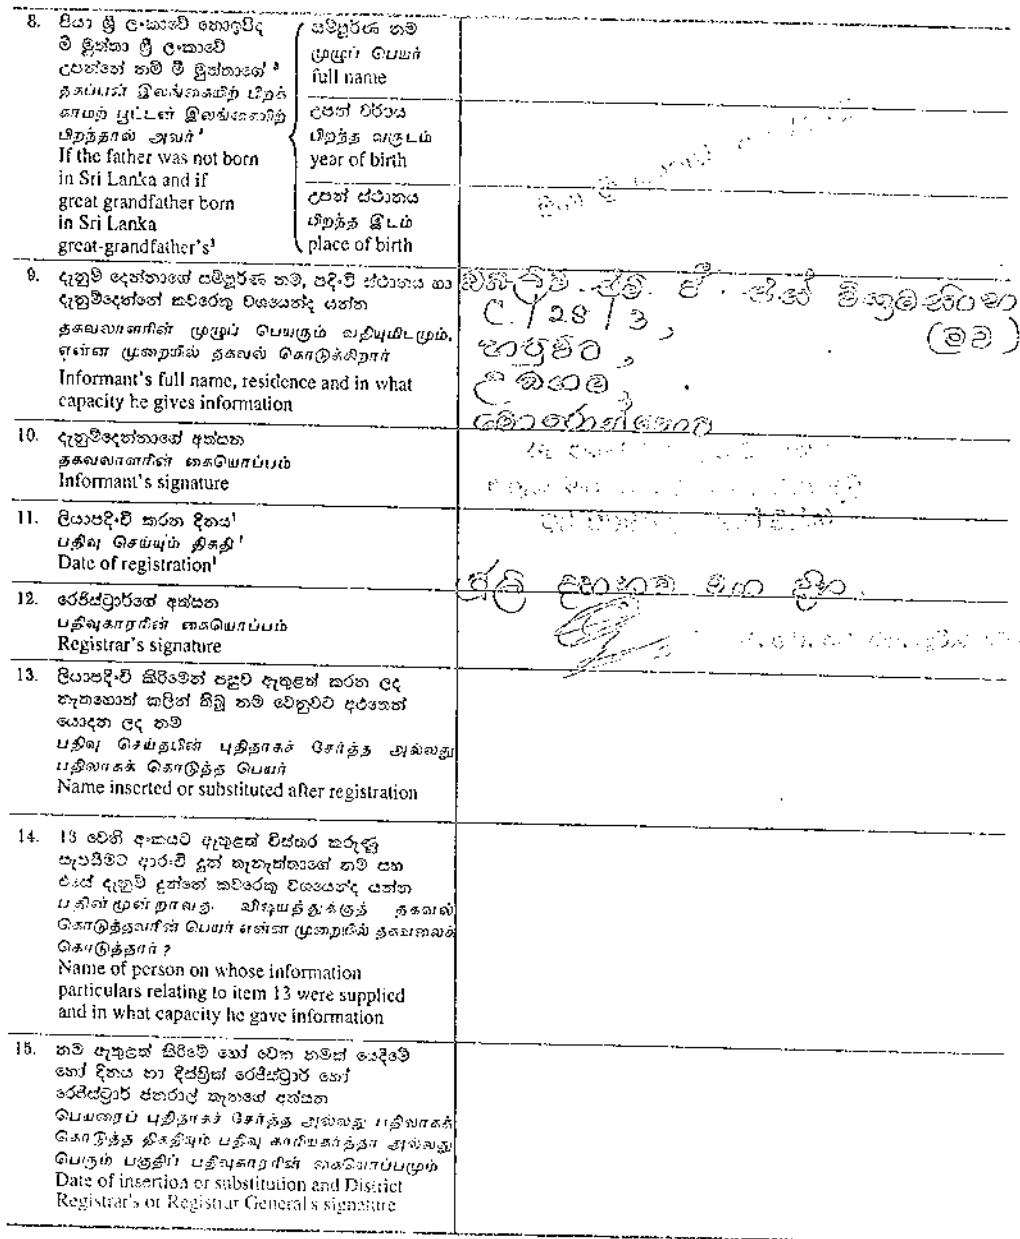 8. පියා ශ්‍රී ලංකාවේ නොඉපිද
මී මුත්තා ශ්‍රී ලංකාවේ
උපන්නේ නම් මී මුත්තාගේ ³
தகப்பன் இலங்கையிற் பிறக்
காமற் பூட்டன் இலங்கையிற்
பிறந்தால் அவர் ³
If the father was not born
in Sri Lanka and if
great grandfather born
in Sri Lanka
great-grandfather's³
සම්පූර්ණ නම
முழுப் பெயர்
full name
උපන් වර්ෂය
பிறந்த வருடம்
year of birth
උපන් ස්ථානය
பிறந்த இடம்
place of birth
9. දැනුම් දෙන්නාගේ සම්පූර්ණ නම, පදිංචි ස්ථානය හා
දැනුම්දෙන්නේ කවරෙකු වශයෙන්ද යන්න
தகவலாளரின் முழுப் பெயரும் வதியுமிடமும்,
என்ன முறையில் தகவல் கொடுக்கிறார்
Informant's full name, residence and in what
capacity he gives information
වික්‍රමසිංහ
C/28/3,
(මව)
හපුවිට,
උඩගම,
මොරොන්තොට
10. දැනුම්දෙන්නාගේ අත්සන
தகவலாளரின் கையொப்பம்
Informant's signature
11. ලියාපදිංචි කරන දිනය¹
பதிவு செய்யும் திகதி ¹
Date of registration¹
ජූලි දහනව මග දින
12. රෙජිස්ට්‍රාර්ගේ අත්සන
பதிவுகாரரின் கையொப்பம்
Registrar's signature
13. ලියාපදිංචි කිරීමෙන් පසුව ඇතුළත් කරන ලද
නැතහොත් කලින් තිබූ නම වෙනුවට අරනෙන්
යොදන ලද නම
பதிவு செய்தபின் புதிதாகச் சேர்த்த அல்லது
பதிலாகக் கொடுத்த பெயர்
Name inserted or substituted after registration
14. 13 වෙනි අංකයට ඇතුළත් විස්තර කරුණු
සැපයීමට ආරංචි දුන් තැනැත්තාගේ නම සහ
එසේ දැනුම් දුන්නේ කවරෙකු වශයෙන්ද යන්න
பதின்மூன்றாவது விஷயத்துக்குத் தகவல்
கொடுத்தவரின் பெயர் என்ன முறையில் தகவலைக்
கொடுத்தார் ?
Name of person on whose information
particulars relating to item 13 were supplied
and in what capacity he gave information
15. නම ඇතුළත් කිරීමේ හෝ වෙන නමක් යෙදීමේ
හෝ දිනය හා දිස්ත්‍රික් රෙජිස්ට්‍රාර් හෝ
රෙජිස්ට්‍රාර් ජනරාල් තැනගේ අත්සන
பெயரைப் புதிதாகச் சேர்த்த அல்லது பதிலாகக்
கொடுத்த திகதியும் பதிவு காரியகர்த்தா அல்லது
பெரும் பகுதிப் பதிவுகாரரின் கையொப்பமும்
Date of insertion or substitution and District
Registrar's or Registrar General's signature